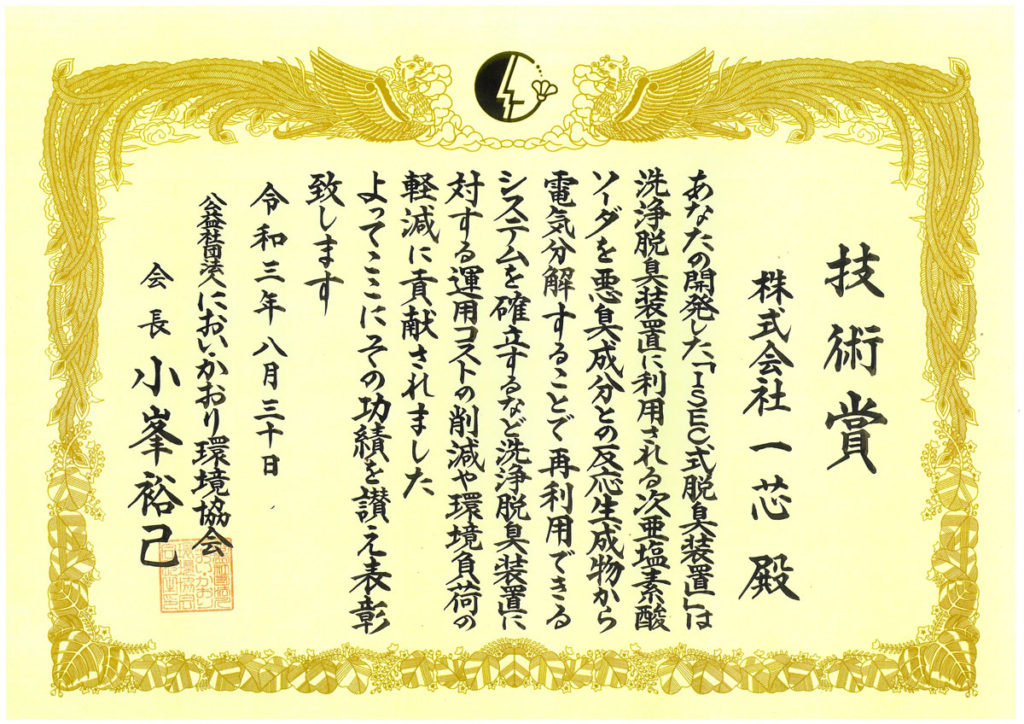 技術賞
株式会社一芯殿
あなたの開発した「ISEC式脱臭装置」は
洗浄脱臭装置に利用される次亜塩素酸
ソーダを悪臭成分との反応生成物から
電気分解することで再利用できる
システムを確立するなど洗浄脱臭装置に
対する運用コストの削減や環境負荷の
軽減に貢献されました
よってここにその功績を讃え表彰
致します
令和三年八月三十日
公益社団法人におい・かおり環境協会
会長 小峯裕己